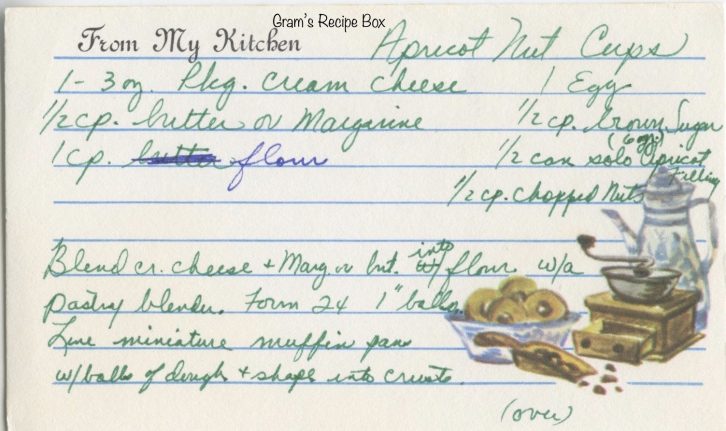 Gram's Recipe Box
From My Kitchen
Apricot Nut Cups
1 - 3 oz. Pkg. cream cheese
1/2 cp. butter or Margarine
1 cp. butter flour
1 Egg
1/2 cp. brown Sugar
(6 oz.)
1/2 can solo Apricot
Filling
1/2 cp. chopped Nuts
Blend cr. cheese + Marg. or but. into w/ flour w/a
pastry blender. Form 24 1" balls.
Line miniature muffin pans
w/balls of dough + shape into crusts.
(over)